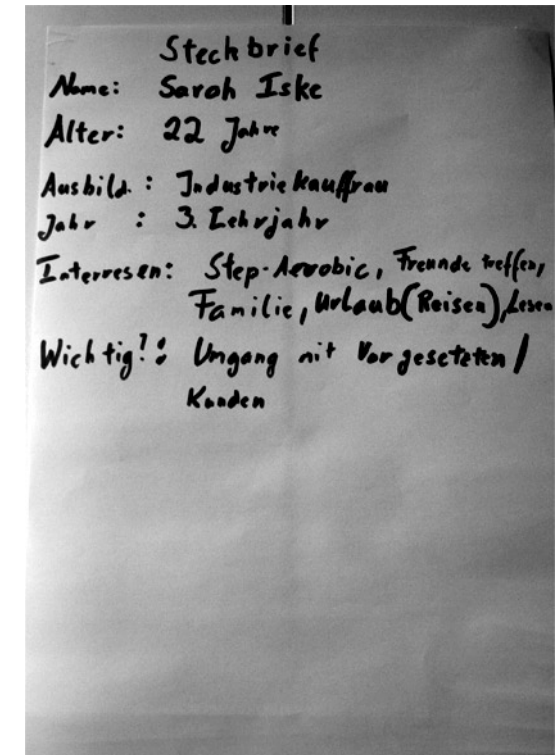 Steckbrief
Name: Sarah Iske
Alter: 22 Jahre
Ausbild.: Industriekauffrau
Jahr : 3. Lehrjahr
Interresen: Step-Aerobic, Freunde treffen,
Familie, Urlaub(Reisen), Lesen
Wichtig?: Umgang mit Vorgesetzten /
Kunden